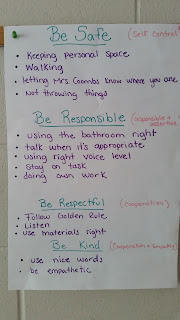 Be Safe (Self Control)
• Keeping personal space
• Walking
• letting Mrs. Coombs know where you are
• Not throwing things
Be Responsible (responsible + assertive
• using the bathroom right
• talk when it's appropriate
• using right voice level
• Stay on task
• doing own work
Be Respectful (cooperation)
• Follow Golden Rule
• Listen
• use materials right
Be Kind (Cooperation + Empathy)
• use nice words
• be empathetic